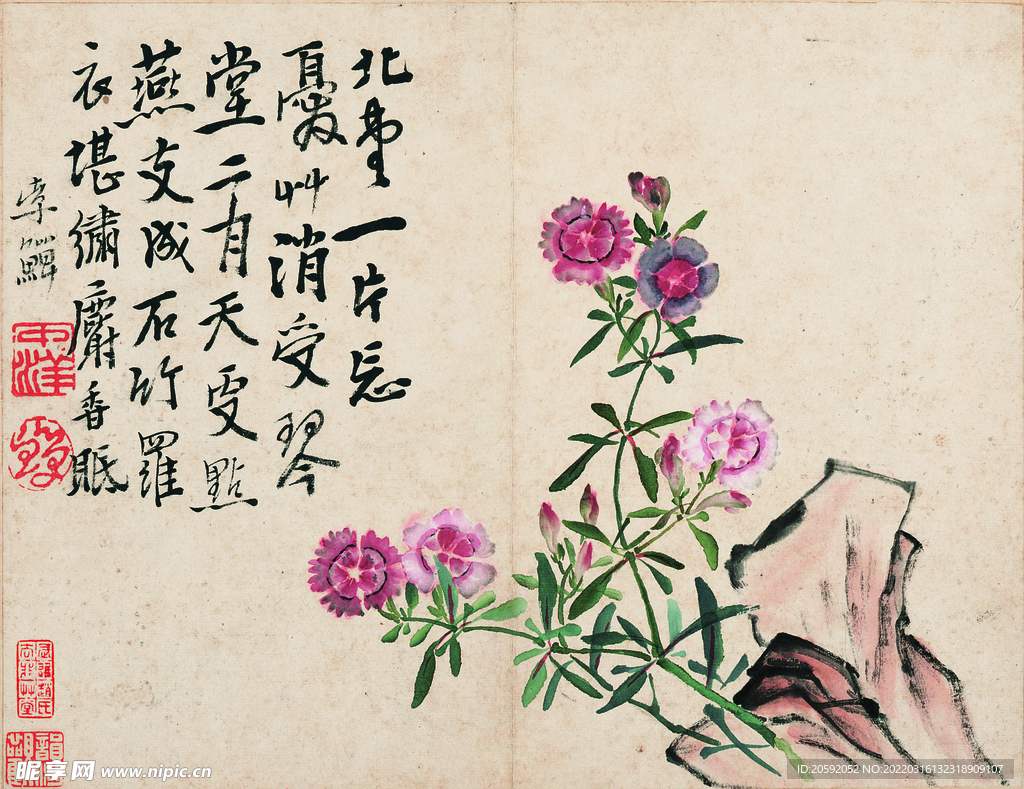 北堂一片忘
憂艸消受琴
堂二月天更點
燕支成石竹羅
衣堪繡麝香眠
李鱓
中洋
昵享网 www.nipic.cn
ID:20592052 NO:20220316132318909107